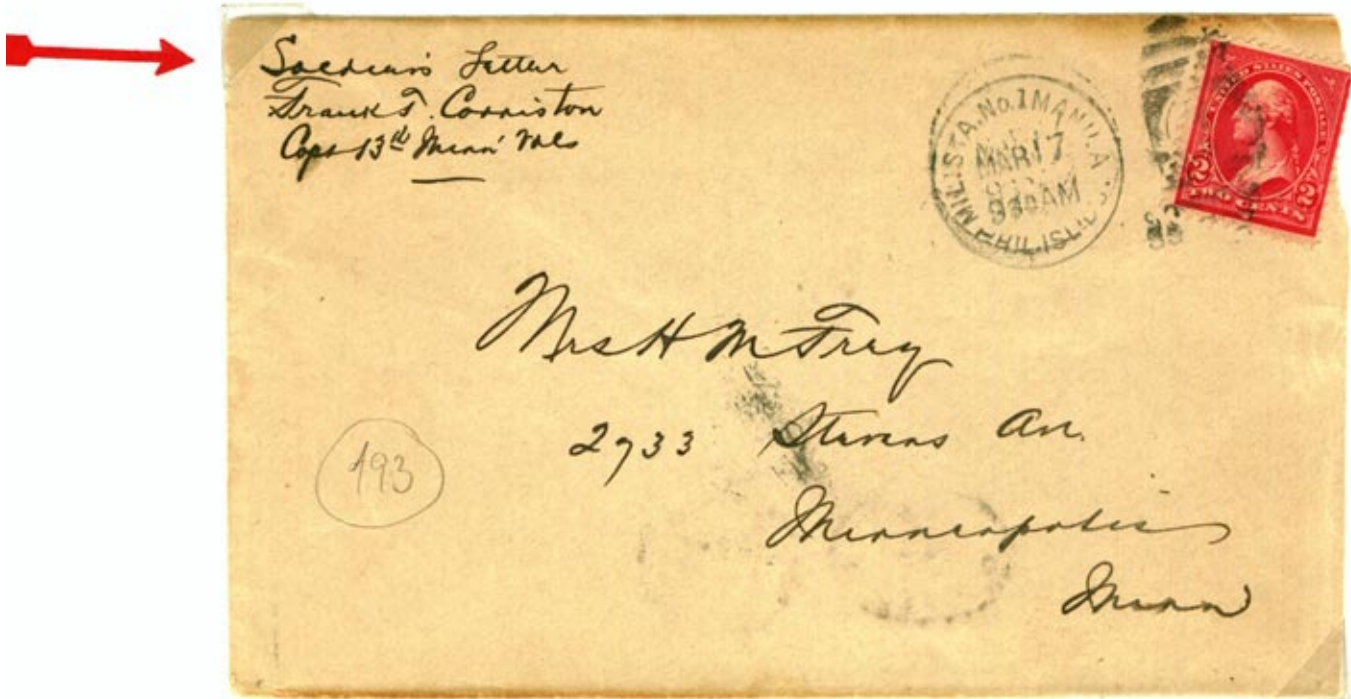 Soldier's Letter
Frank T. Corriston
Capt 13th Minn' Vols
MIL. STA. No. 1 MANILA
MAR 17
930 AM
PHIL. ISL.
UNITED STATES POSTAGE
2 2
TWO CENTS
Mrs H M Frey
2733 Stevens Av.
Minneapolis
Minn
193